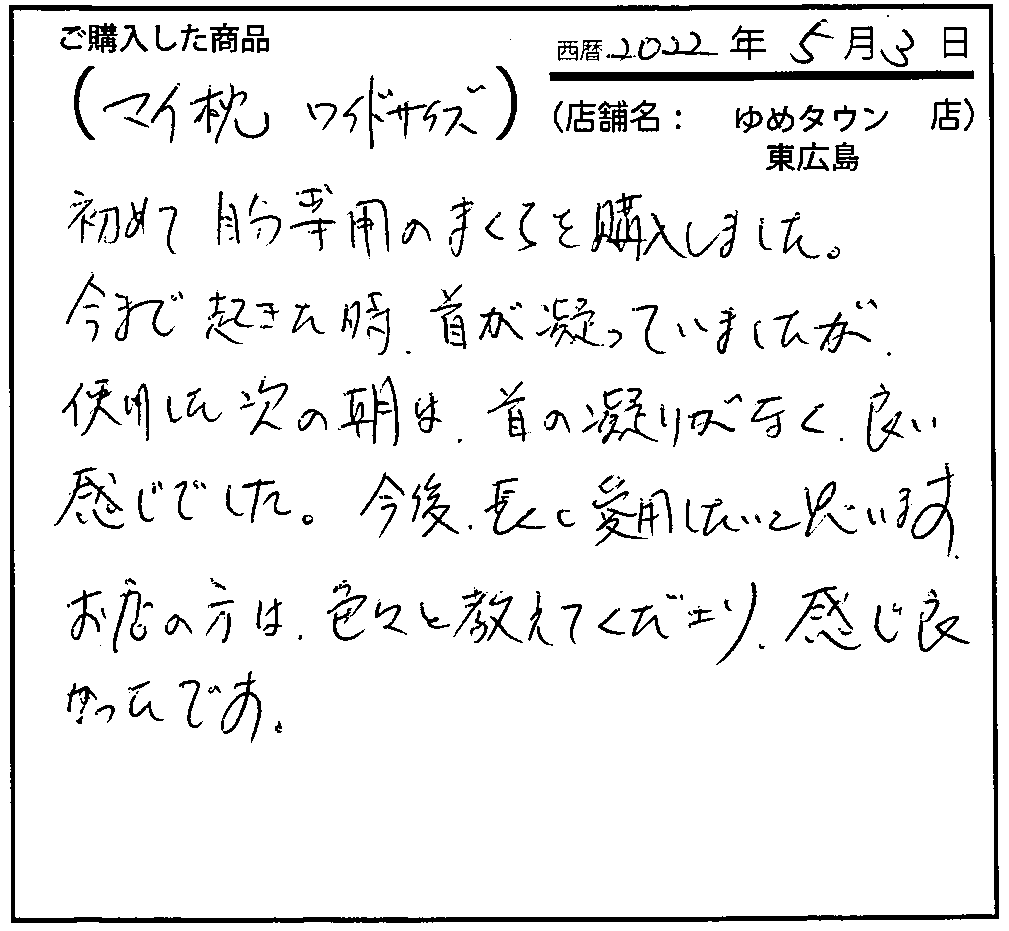 ご購入した商品
(マイ枕 ワイドサイズ)
西暦 2022 年 5 月 3 日
(店舗名: ゆめタウン 店)
東広島
初めて自分専用のまくらを購入しました。
今まで起きた時、首が凝っていましたが、
使用した次の朝は、首の凝りがなく、良い
感じでした。今後、長く愛用したいと思います。
お店の方は、色々と教えてくださり、感じ良
かったです。